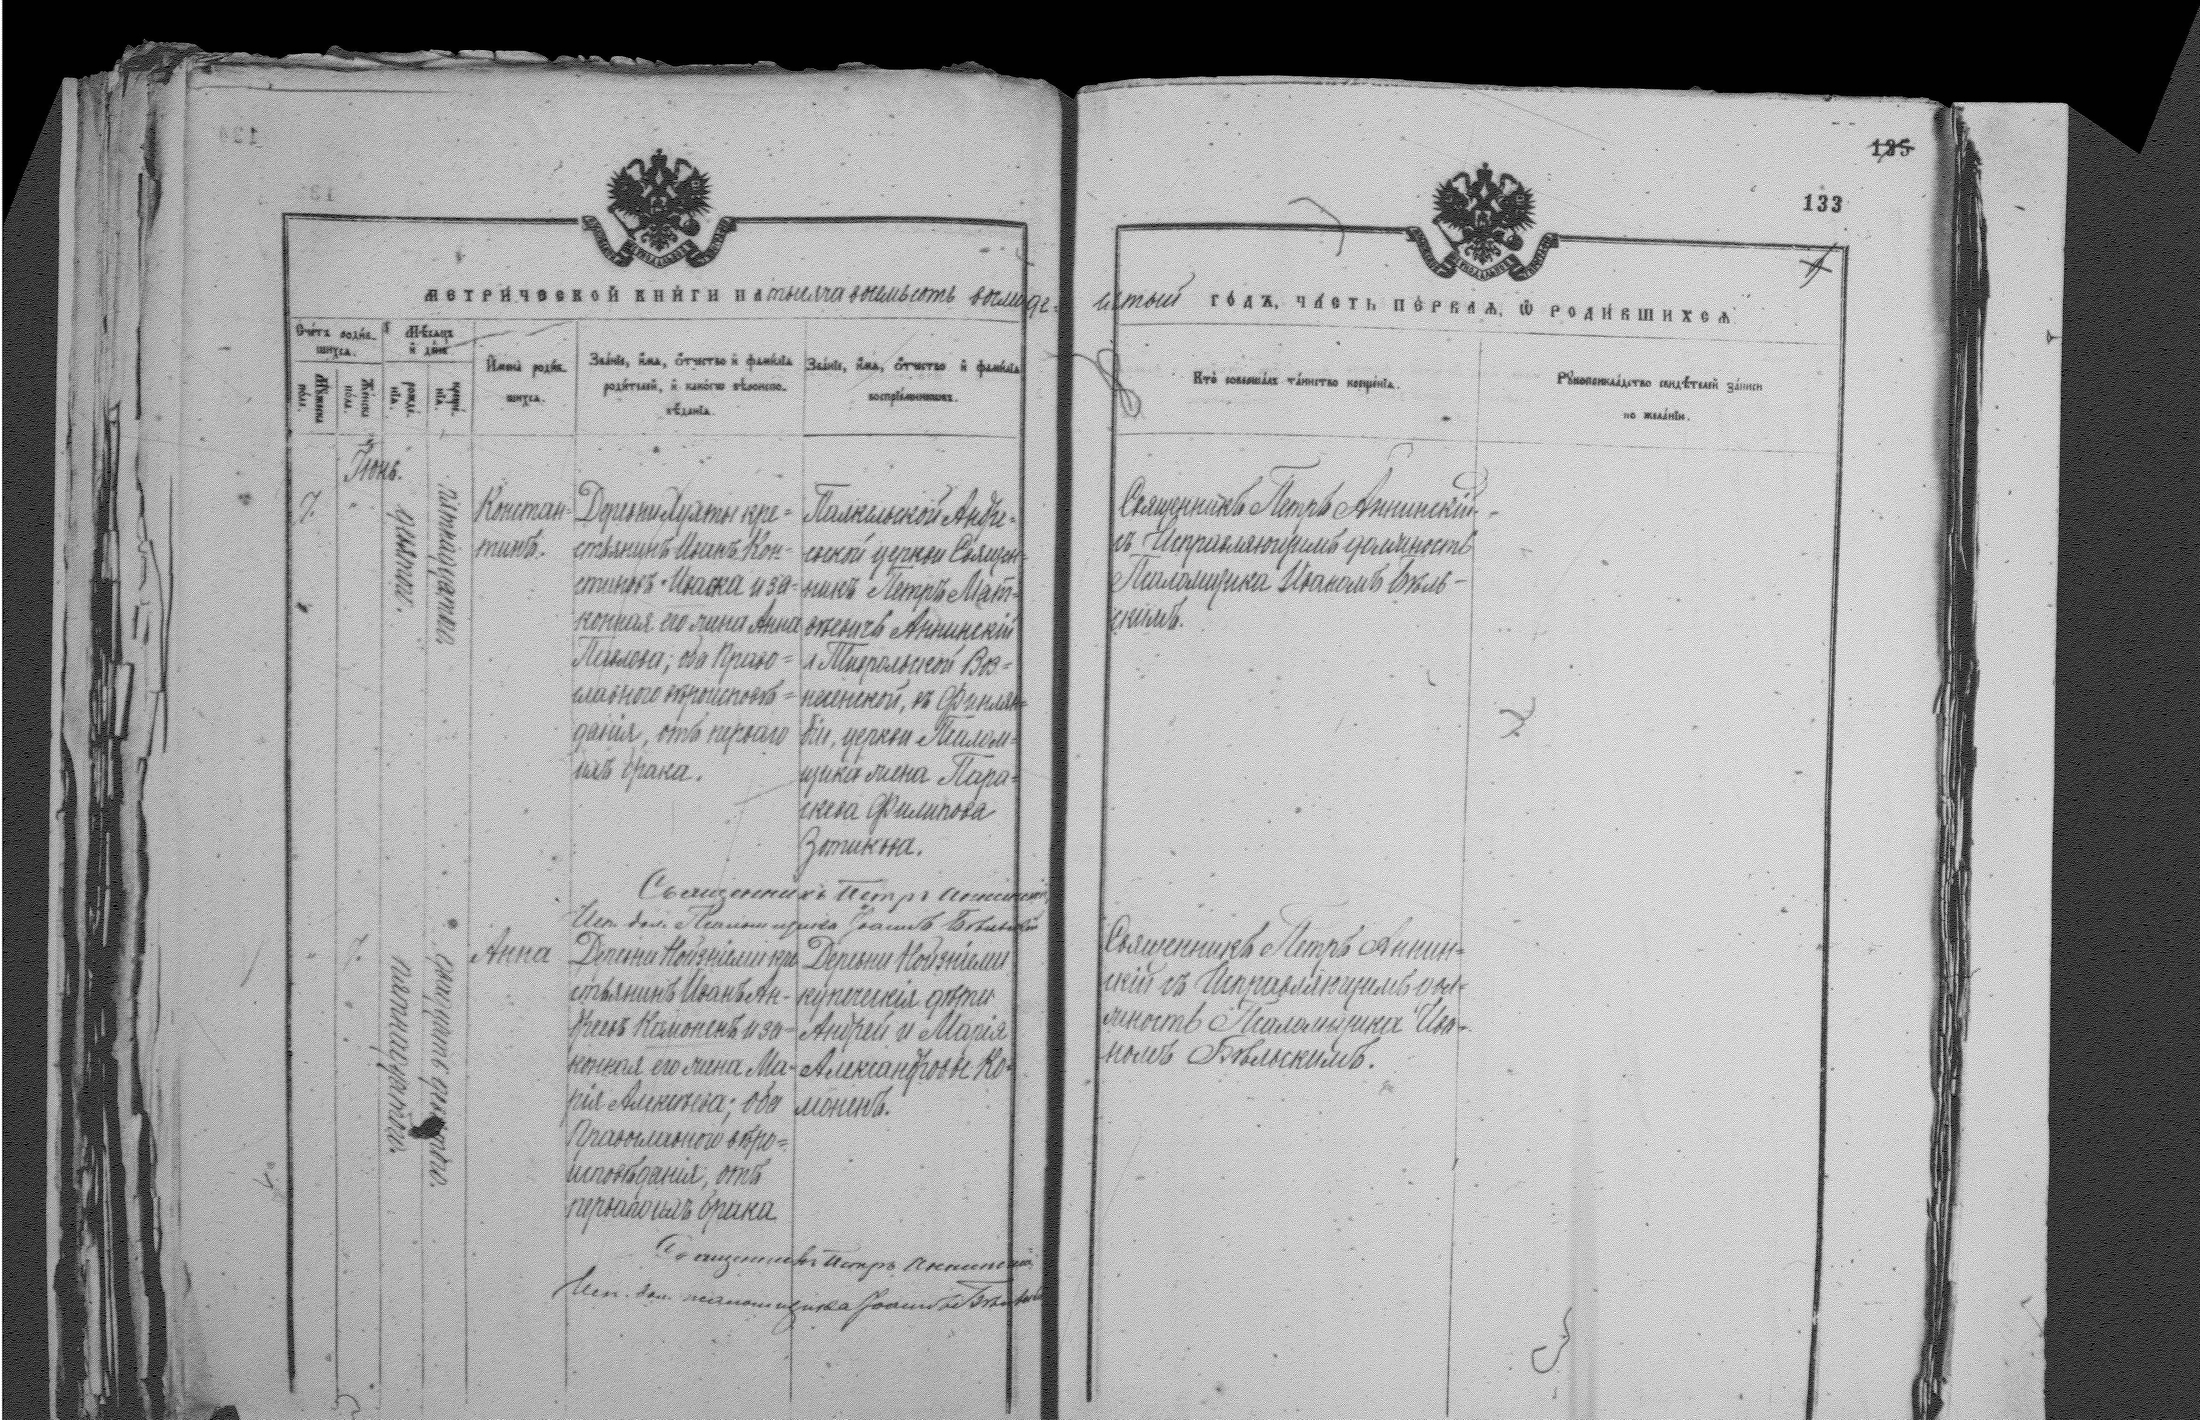 125
133
МЕТРИЧЕСКОЙ КНИГИ НА тысяча восемьсотъ восмиде-
сятый ГОДЪ, ЧАСТЬ ПЕРВАЯ, Ѡ РОДИВШИХСЯ
Счетъ родив-
шихся.
Мужеска
пола.
Женска
пола.
Мѣсяцъ
и день
рожде-
нія.
креще-
нія.
Имена родив-
шихся.
Званіе, имя, отчество и фамилія
родителей, и какого вѣроиспо-
вѣданія.
Званіе, имя, отчество и фамилія
воспріемниковъ.
Кто совершалъ таинство крещенія.
Рукоприкладство свидѣтелей записи
по желанію.
Іюнь.
7.
"
девятаго.
пятнадцатаго
Констан-
тинъ.
Деревни кре-
стьянинъ Иванъ Кон-
стиновъ Иваска и за-
конная его жена Анна
Павлова; оба Право-
славнаго вѣроисповѣ-
данія, отъ перваго
имъ брака.
Палкельской Андре-
евской церкви Священ-
никъ Петръ Мат-
вѣевичъ Аннинскій
и Тиврольской Воз-
несенской, въ Финлян-
діи, церкви Псалом-
щика жена Пара-
скева Филипова
Зотикова.
Священникъ Петръ Аннинскій
съ Исправляющимъ должность
Псаломщика Иваномъ Бѣль-
скимъ.
Священникъ Петръ Аннинскій
Исп. дол. Псаломщика Іоаннъ Бѣльскій
"
7.
пятнадцатаго.
двадцать девятаго.
Анна
Деревни Койзніеми кре
стьянинъ Иванъ Ан-
дреевъ Камоненъ и за-
конная его жена Ма-
рія Алексѣева; оба
Православнаго вѣро-
исповѣданія, отъ
перваго имъ брака
Деревни Койзніеми
купеческія дѣти
Андрей и Марія
Александровы Ко-
моненъ.
Священникъ Петръ Аннин-
скій съ Исправляющимъ дол-
жность Псаломщика Ива-
номъ Бѣльскимъ.
Священникъ Петръ Аннинскій
Исп. дол. псаломщика Іоаннъ Бѣльскій